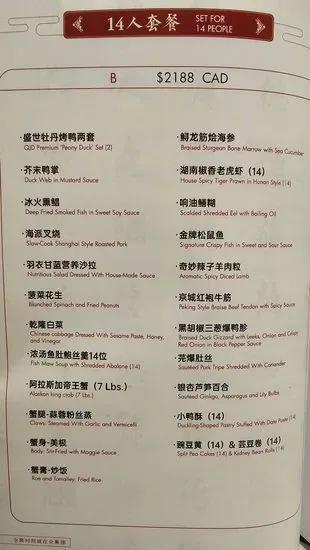 14人套餐
SET FOR
14 PEOPLE
B $2188 CAD
·盛世牡丹烤鸭两套
QJD Premium 'Peony Duck' Set (2)
·芥末鸭掌
Duck Web in Mustard Sauce
·冰火熏鲳
Deep Fried Smoked Fish in Sweet Soy Sauce
·海派叉烧
Slow-Cook Shanghai Style Roasted Pork
·羽衣甘蓝营养沙拉
Nutritious Salad Dressed With House-Made Sauce
·菠菜花生
Blanched Spinach and Fried Peanuts
·乾隆白菜
Chinese cabbage Dressed With Sesame Paste, Honey,
and Vinegar
·浓汤鱼肚鲍丝羹14位
Fish Maw Soup with Shredded Abalone (14)
·阿拉斯加帝王蟹 (7 Lbs.)
Alaskan king crab (7 Lbs.)
·蟹腿-蒜蓉粉丝蒸
Claws: Steamed With Garlic and Vermicelli
·蟹身-美极
Body: Stir-Fried with Maggie Sauce
·蟹膏-炒饭
Roe and Tomalley: Fried Rice
·鲟龙筋烩海参
Braised Sturgeon Bone Marrow with Sea Cucumber
·湖南椒香老虎虾 (14)
House Spicy Tiger Prawn in Hunan Style (14)
·响油鳝糊
Scalded Shredded Eel with Boiling Oil
·金牌松鼠鱼
Signature Crispy Fish in Sweet and Sour Sauce
·奇妙辣子羊肉粒
Aromatic Spicy Diced Lamb
·京城红袍牛筋
Peking Style Braise Beef Tendon with Spicy Sauce
·黑胡椒三葱爆鸭胗
Braised Duck Gizzard with Leeks, Onion and Crispy
Red Onion in Black Pepper Sauce
·芫爆肚丝
Sautéed Pork Tripe Shredded With Coriander
·银杏芦笋百合
Sautéed Ginkgo, Asparagus and Lily Bulbs
·小鸭酥 (14)
Duckling-Shaped Pastry Stuffed With Date Paste (14)
·豌豆黄 (14) & 芸豆卷 (14)
Split Pea Cakes (14) & Kidney Bean Rolls (14)